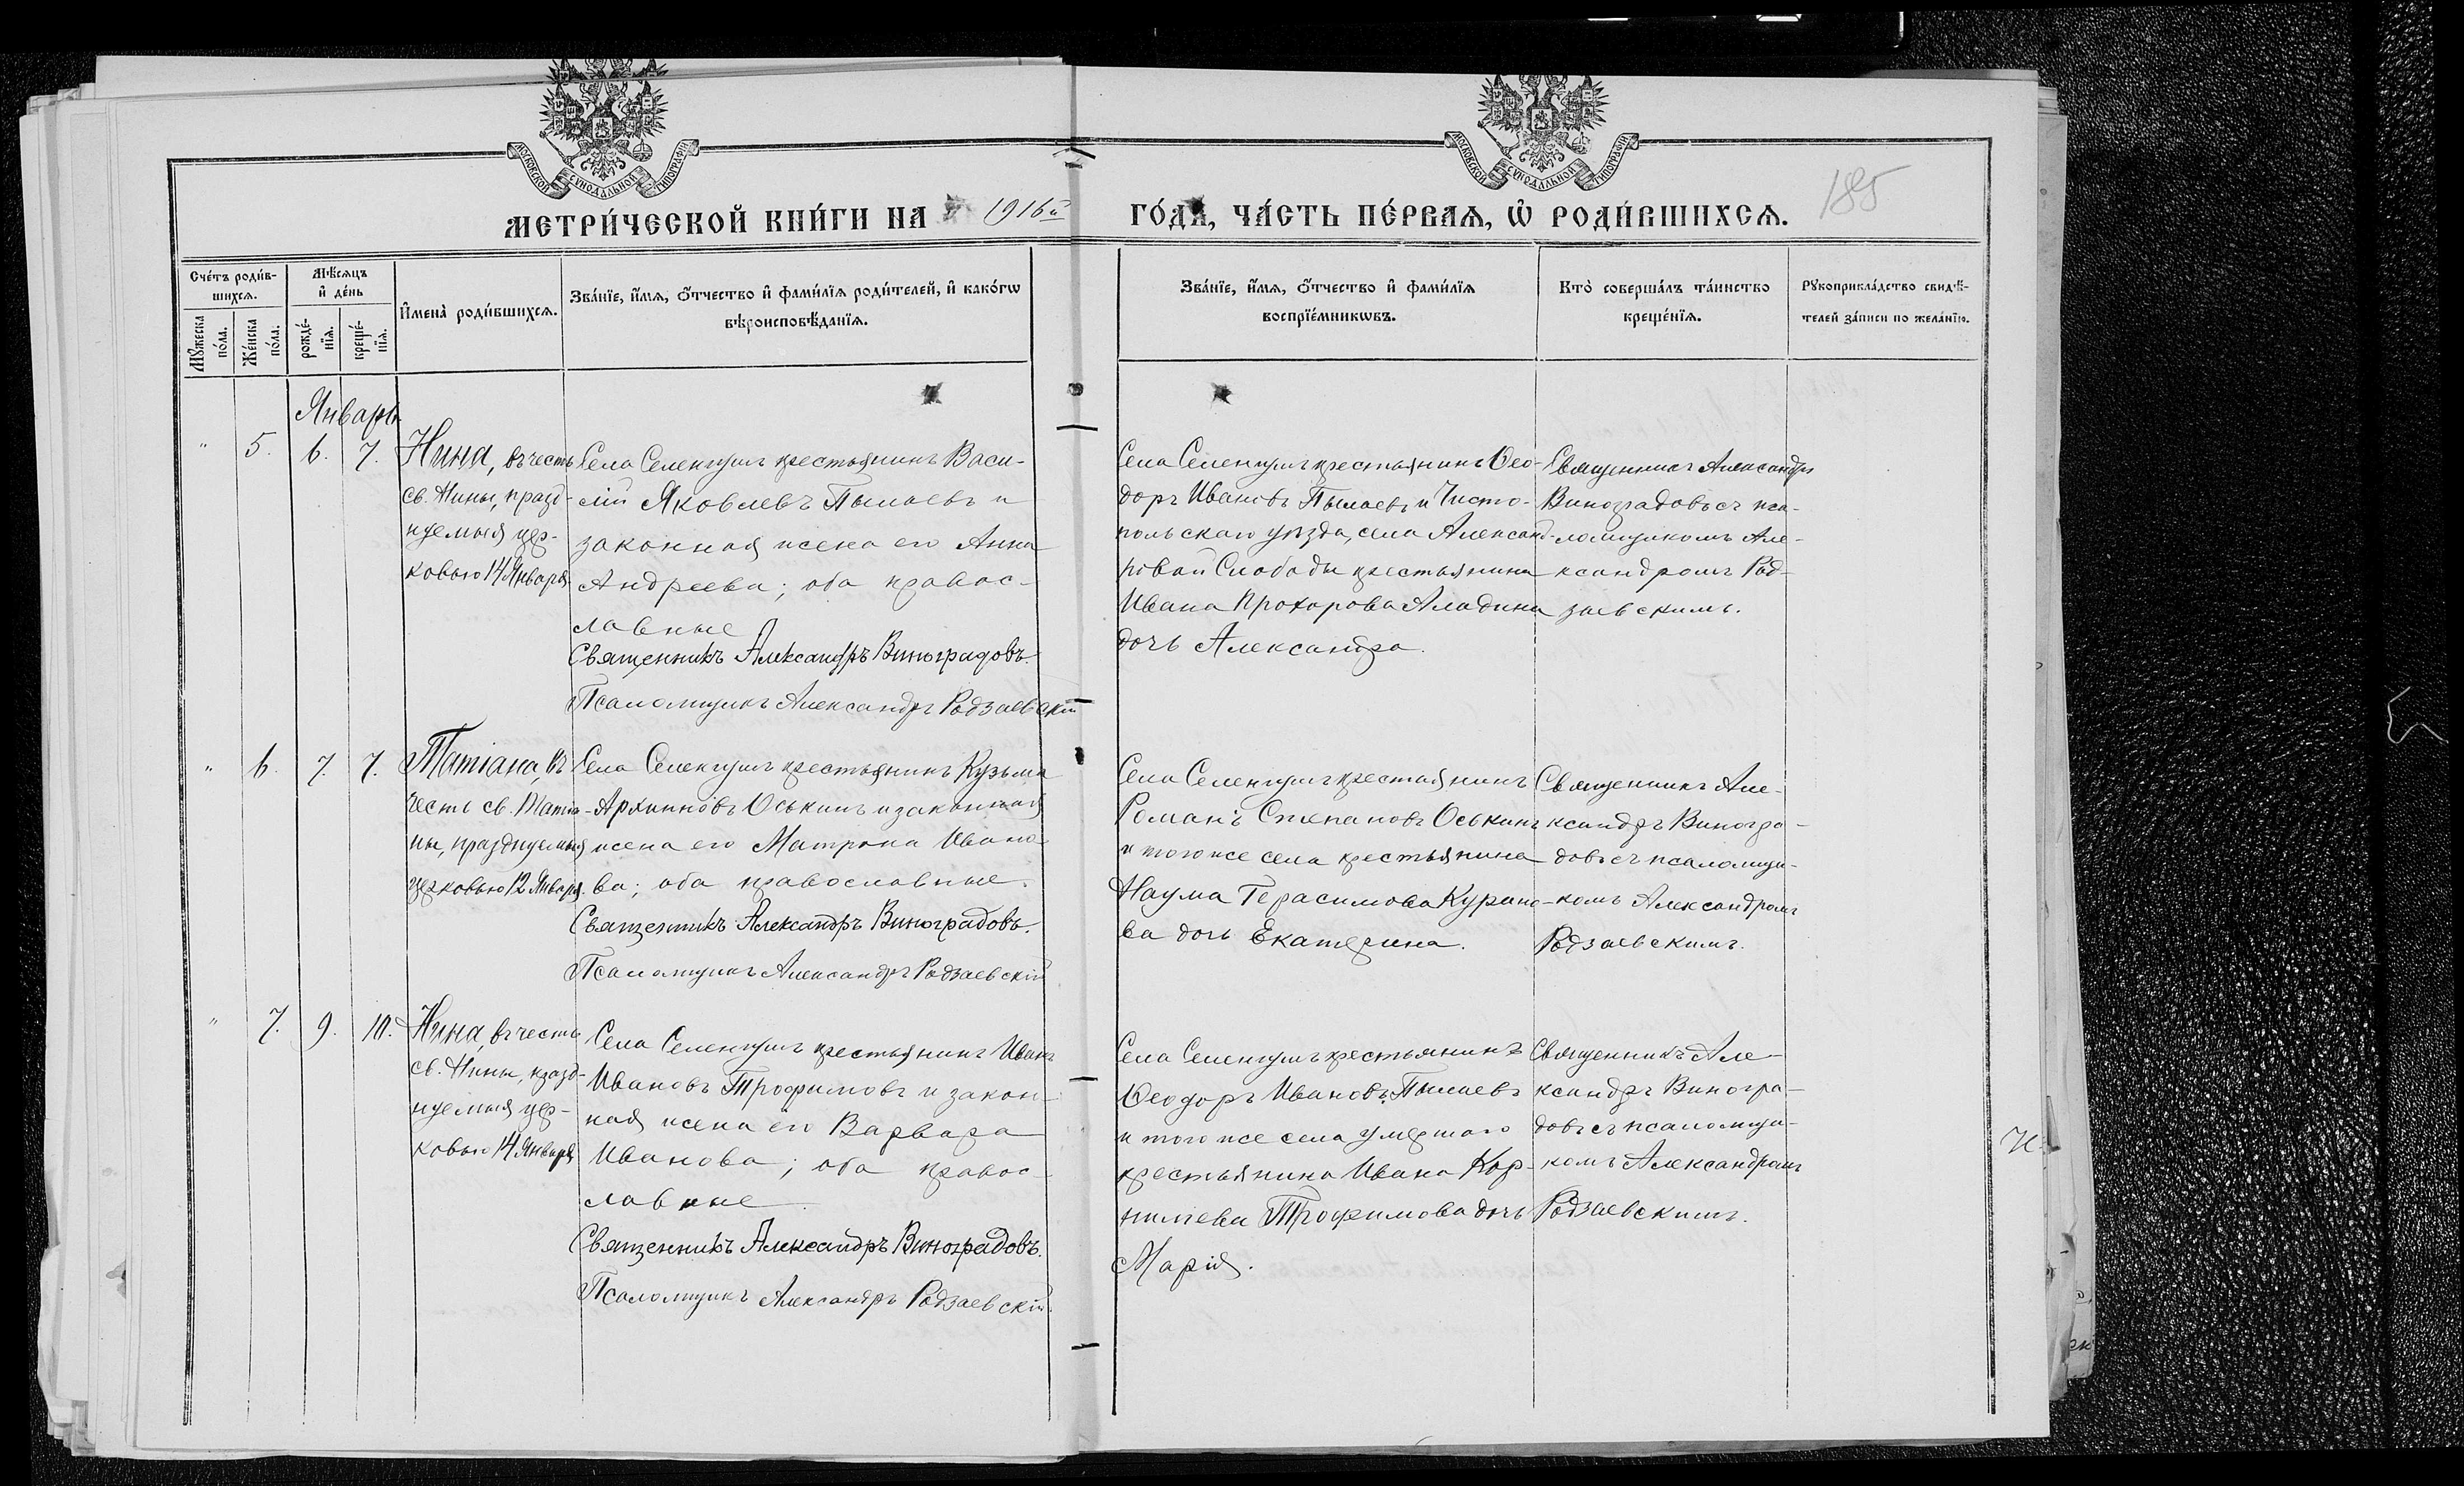 МОСКОВСКОЙ СУНОДАЛЬНОЙ ТИПОГРАФІИ
МОСКОВСКОЙ СУНОДАЛЬНОЙ ТИПОГРАФІИ
МЕТРИ́ЧЕСКОЙ КНИ́ГИ НА 1916й ГО́ДА, ЧА́СТЬ ПЕ́РВАѦ, Ѡ҆ РОДИ́ВШИХСѦ.
185
Сче́тъ роди́в-
шихсѧ.
Мѣ́сѧцъ
и҆ де́нь
И҆мена̀ роди́вшихсѧ.
Зва́нїе, и҆́мѧ, ѻ҆́тчество и҆ фами́лїѧ роди́телей, и҆ како́гѡ
вѣроисповѣ́данїѧ.
Зва́нїе, и҆́мѧ, ѻ҆́тчество и҆ фами́лїѧ
воспрїе́мникѡвъ.
Кто̀ соверша́лъ та́инство
креще́нїѧ.
Рꙋкоприкла́дство свидѣ́-
телей за́писи по жела́нїю.
Мꙋ́жеска
по́ла.
Же́нска
по́ла.
рожде́-
нїѧ.
креще́-
нїѧ.
Январь
" 5. 6. 7.
Нина, въ честь
св. Нины, празд-
нуемыя цер-
ковью 14 Января
Села Селенгушъ крестьянинъ Васи-
лій Яковлевъ Пылаевъ и
законная жена его Анна
Андреева; оба правос-
лавные
Священникъ Александръ Виноградовъ.
Псаломщикъ Александръ Родзаевскій
Села Селенгушъ крестьянинъ Ѳео-
доръ Ивановъ Пылаевъ и Чисто-
польскаго уѣзда, села Александ-
ровой Слободы крестьянина
Ивана Прохорова Аладина
дочь Александра.
Священникъ Александръ
Виноградовъ съ пса-
ломщикомъ Але-
ксандромъ Род-
заевскимъ.
" 6. 7. 7.
Татіана, въ
честь св. Татіа-
ны, празднуемыя
церковью 12 Января.
Села Селенгушъ крестьянинъ Кузьма
Архиповъ Оськинъ и законная
жена его Матрона Ивано-
ва; оба православные.
Священникъ Александръ Виноградовъ.
Псаломщикъ Александръ Родзаевскій
Села Селенгушъ крестьянинъ
Романъ Степановъ Оськинъ
и того же села крестьянина
Наума Герасимова Курано-
ва дочь Екатерина.
Священникъ Але-
ксандръ Виногра-
довъ съ псаломщи-
комъ Александромъ
Родзаевскимъ.
" 7. 9. 10.
Нина, въ честь
св. Нины, празд-
нуемыя цер-
ковью 14 Января
Села Селенгушъ крестьянинъ Иванъ
Ивановъ Трофимовъ и закон-
ная жена его Варвара
Иванова; оба правос-
лавные.
Священникъ Александръ Виноградовъ.
Псаломщикъ Александръ Родзаевскій.
Села Селенгушъ крестьянинъ
Ѳеодоръ Ивановъ Пылаевъ
и того же села умершаго
крестьянина Ивана Кор-
нилева Трофимова дочь
Марія.
Священникъ Але-
ксандръ Виногра-
довъ съ псаломщи-
комъ Александромъ
Родзаевскимъ.